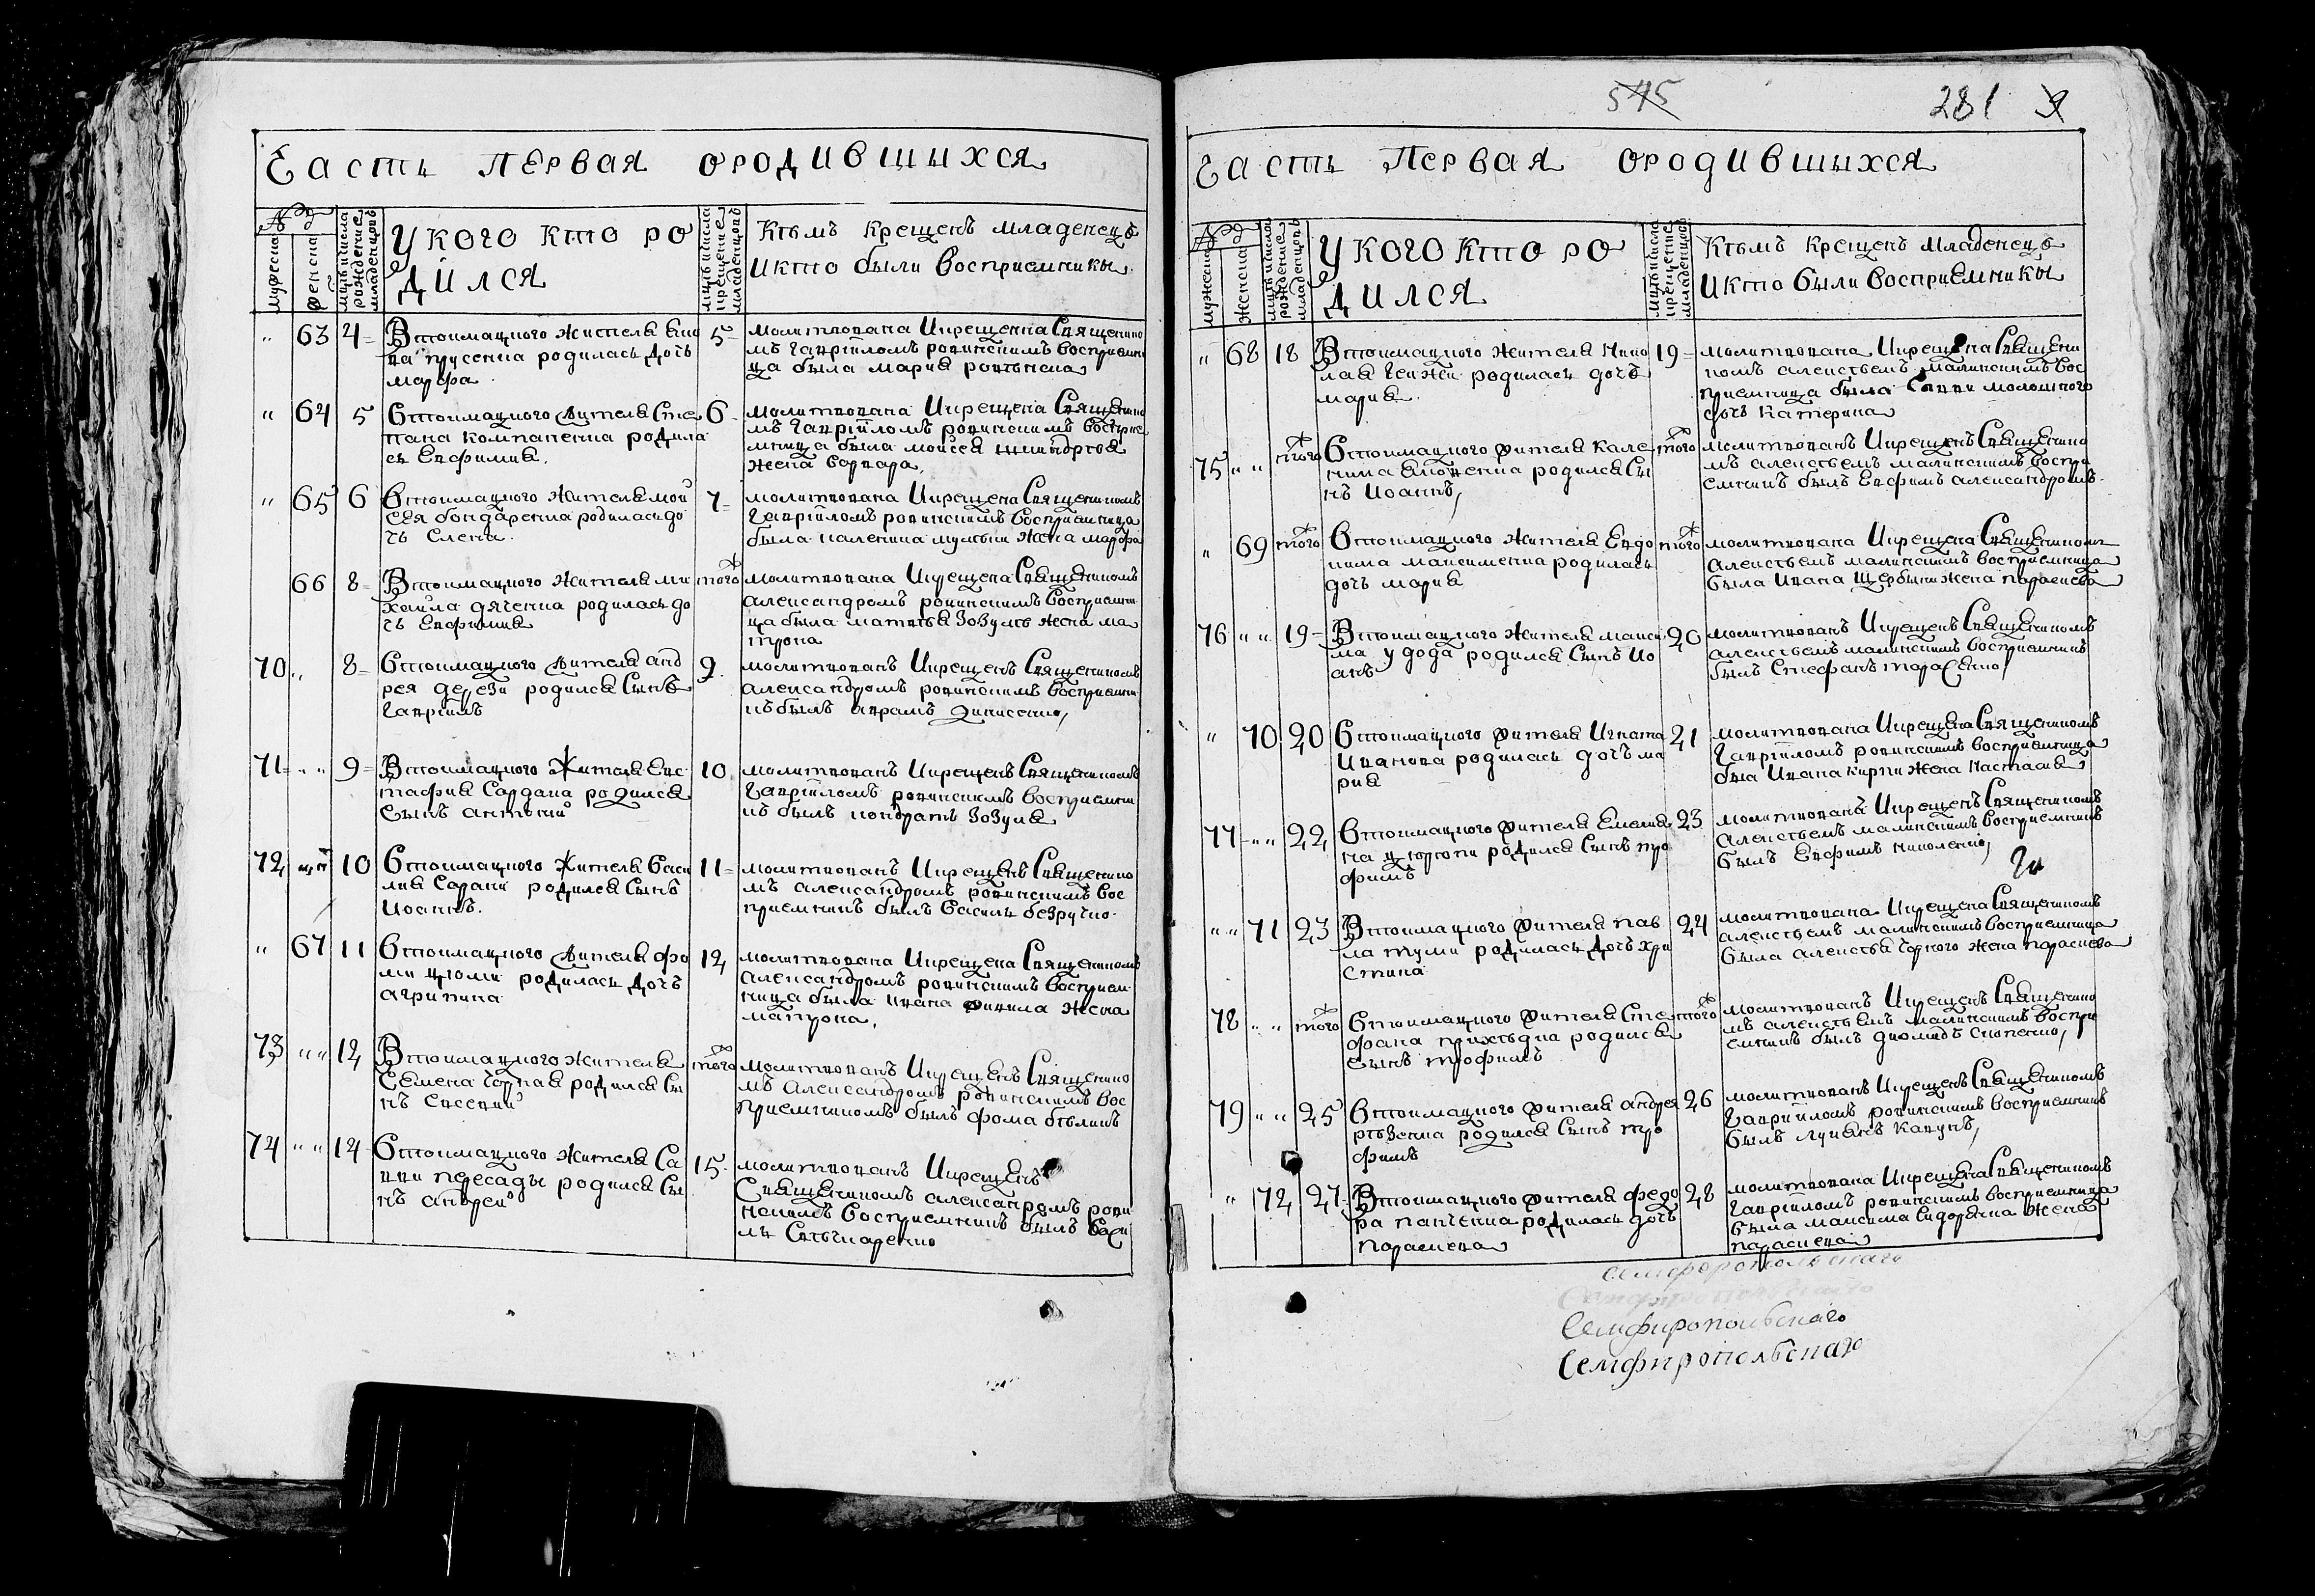 Часть первая ородившихся
№д
мужеска
женска
мцъ ичисла рождение младенцовъ
У кого кто ро
дился
мцъ ичисла крещение младенцовъ
Кѣмъ крещенъ младенецъ
Икто были восприемники
" 63 4 Втокмацкого жителя
родилась дочь
марфа
5 молитвована Икрещенна Священико
мъ гавріиломъ ровинскимъ восприемни
ца была мария
" 64 5 Втокмацкого жителя Сте
пана компаненка родила
ся Евфимия
6 молитвована Икрещена Священико
мъ гавріиломъ ровинскимъ восприе
мница была моисея
жена варвара
" 65 6 Втокмацкого жителя мои
сея бондаренка родилась до
чь Елена
7 молитвована Икрещена Священикомъ
гавріиломъ ровинскимъ восприемница
была жена марфа
66 8 Втокмацкого жителя ми
хаила дяченка родилась до
чь Евфимия
тогож молитвована Икрещена Священикомъ
александромъ ровинскимъ восприемни
ца была матвѣя Зозулѣ жена ма
трона
70 " 8 Втокмацкого жителя анд
рея дерези родился Сынъ
гавріилъ
9 молитвованъ Икрещенъ Священикомъ
александромъ ровинскимъ восприемни
къ былъ аврамъ
71 " " 9 Втокмацкого Жителя Евс
тафия Сардака родился
Сынъ антоний
10 молитвованъ Икрещенъ Священикомъ
гавріиломъ ровинскимъ восприемни
къ былъ кондратъ Зозуля
72 10 Втокмацкого Жителя васи
лия Сараки родился Сынъ
Иоаннъ
11 молитвованъ Икрещенъ Священико
мъ александромъ ровинскимъ вос
приемникъ былъ василь безручко
" 67 11 Втокмацкого жителя фо
ми цюпки родилась дочь
агрипина
12 молитвована Икрещена Священикомъ
александромъ ровинскимъ восприем
ница была ивана жена
матрона
73 " " 12 Втокмацкого жителя
Семена чорная родился Сы
нъ Евсевий
тогож молитвованъ Икрещенъ Священико
мъ александромъ ровинскимъ вос
приемникомъ былъ фома бѣликъ
74 " " 14 Втокмацкого жителя Са
ввы пересады родился Сы
нъ андрей
15 молитвованъ Икрещенъ
Священикомъ александромъ рови
нскимъ восприемникъ былъ васи
ль
545
281
Часть Первая ородившихся
№д
мужеска
женска
мцъ ичисла рождение младенцовъ
У кого кто ро
дился
мцъ ичисла крещение младенцовъ
Кѣмъ крещенъ младенецъ
Икто были восприемники
" 68 18 Втокмацкого жителя Нико
лая родилась дочь
мария
19 молитвована Икрещена Священи
комъ алексѣемъ малинскимъ вос
приемница была Саввы молошного
дочь Катерина
75 " " тогож Втокмацкого жителя
родился Сы
нъ Иоаннъ
тогож молитвованъ Икрещенъ Священико
мъ алексѣемъ малинскимъ воспри
емникъ былъ Евфимъ александровъ
" 69 тогож Втокмацкого жителя Евдо
кима максименка родилась
дочь мария
тогож молитвована Икрещена Священикомъ
алексѣемъ малинскимъ восприемница
была Ивана щербини жена параскева
76 " " 19 Втокмацкого жителя макси
ма удода родился Сынъ Ио
анъ
20 молитвованъ Икрещенъ Священикомъ
алексѣемъ малинскимъ восприемникъ
былъ Стефанъ тарасенко
" 70 20 Втокмацкого жителя Игната
Иванова родилась дочь ма
рия
21 молитвована Икрещена Священикомъ
гавріиломъ ровинскимъ восприемница
была Ивана кирпи жена Настасия
77 " " 22 Втокмацкого жителя Емелия
на родился Сынъ тро
фимъ
23 молитвованъ Икрещенъ Священикомъ
алексѣемъ малинскимъ восприемникъ
былъ Евфимъ николенко
" " 71 23 Втокмацкого жителя пав
ла родилась дочь хри
стина
24 молитвована Икрещена Священикомъ
алексѣемъ малинскимъ восприемница
была алексѣя чорного жена параскева
78 " " тогож Втокмацкого жителя Сте
фана приходка родился
Сынъ трофимъ
тогож молитвованъ Икрещенъ Священико
мъ алексѣемъ малинскимъ воспри
емникъ былъ диомидъ
79 " " 25 Втокмацкого жителя андрея
родился Сынъ тро
фимъ
26 молитвованъ Икрещенъ Священикомъ
гавріиломъ ровинскимъ восприемникъ
былъ лукянъ
" 72 27 Втокмацкого жителя федо
ра панченка родилась дочь
параскева
28 молитвована Икрещена Священикомъ
гавріиломъ ровинскимъ восприемница
была максима Сидоренка жена
параскева
Семфиропольскаго
Семфиропольскаго
Семфиропольскаго